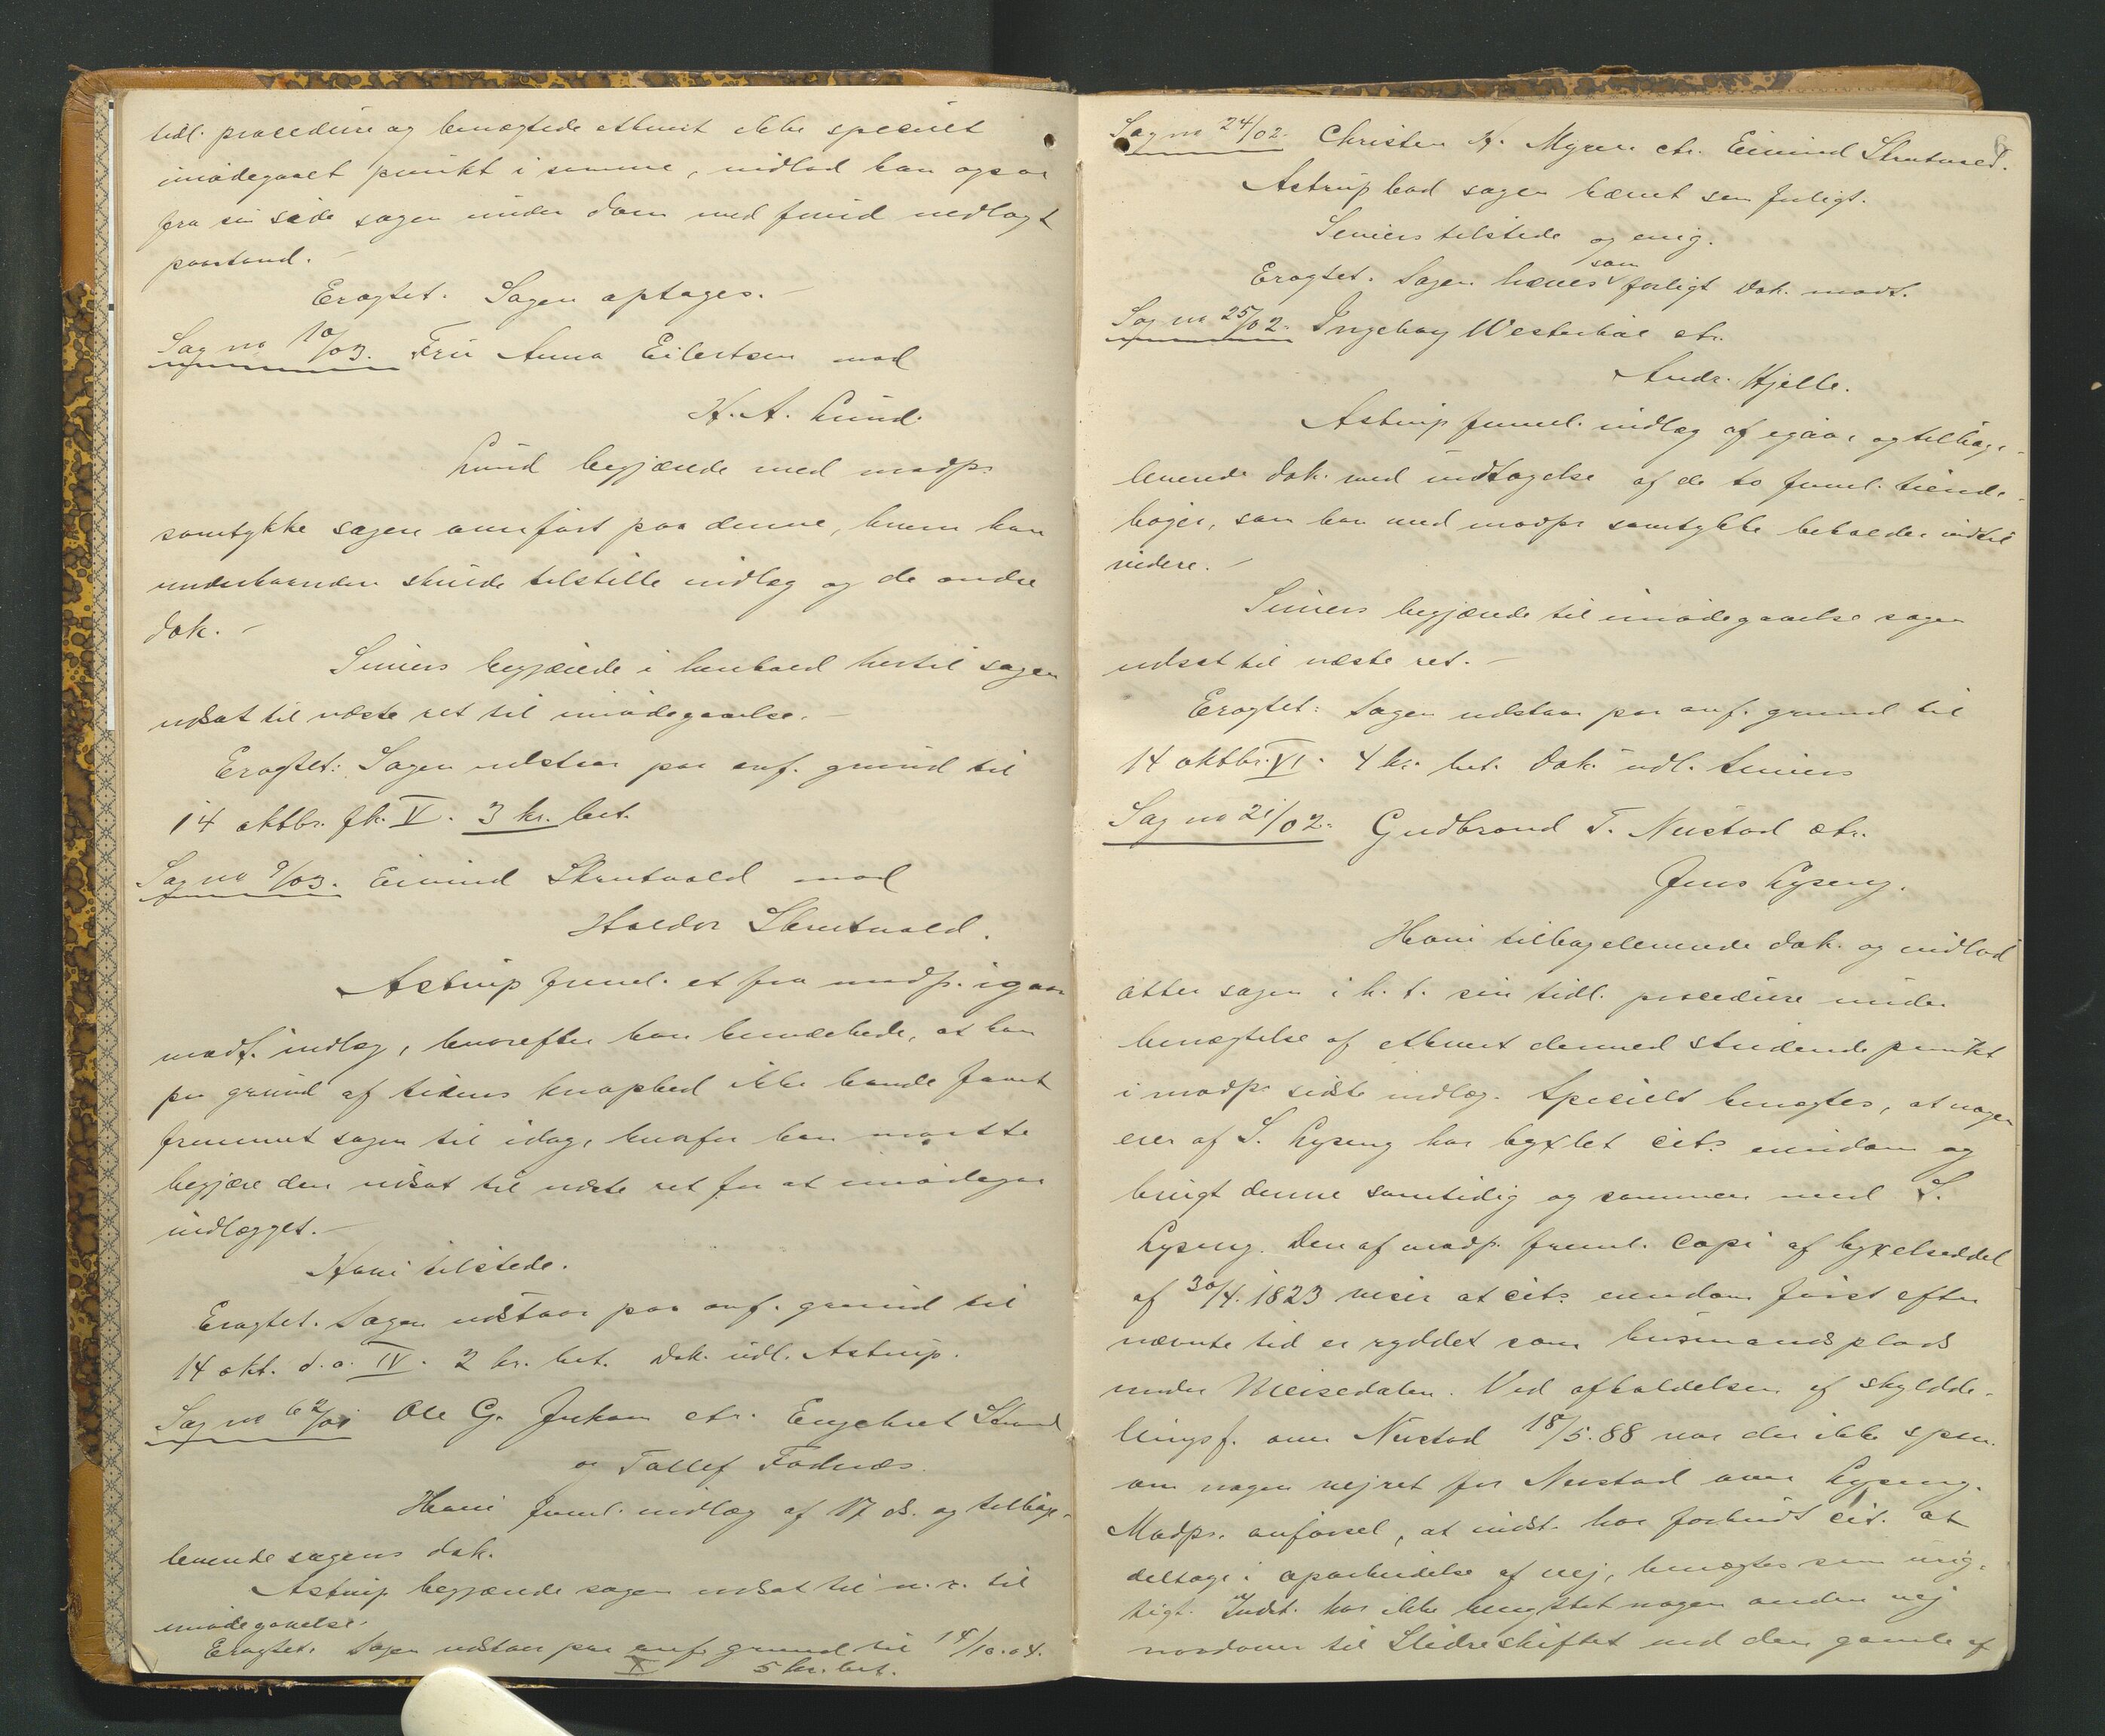 tidl. procedure og benægtede ethvert ikke specielt
imødegaaet punkt i samme, indlod han ogsaa
fra sin side sagen under dom med før nedlagt
paastand.
Eragtet. Sagen optages.
Sag no 10/03. Fru Anna Eilertsen mod
H. A. Lund.
Lund begjærede med modp.
samtykke sagen overført paa denne, hvem han
underhaanden skulde tilstille indlæg og de andre
dok.
Siniers begjærede i henhold hertil sagen
udsat til næste ret til imødegaaelse.
Eragtet: Sagen udstaar paa anf. grund til
14 oktbr. fk. V. 3 kr. bet.
Sag no 9/03. Eivind Skrutvold mod
Haldor Skrutvold.
Astrup freml. et fra modp. igaar
modt. indlæg, hvorefter han bemærkede, at han
pa grund af tidens knaphed ikke havde faaet
fremmet sagen til idag, hvorfor han maatte
begjære den udsat til næste ret for at imødegaa
indlægget.
Hovi tilstede.
Eragtet. Sagen udstaar paa anf. grund til
14 okt. d.a. IV. 2 kr. bet. Dok. udl. Astrup.
Sag no 62/01 Ole G. Jukam ctr. Engebret Strand
og Tollef Fodnæs.
Hovi freml. indlæg af 17 ds. og tilbage-
leverede sagens dok.
Astrup begjærede sagen udsat til n. r. til
imødegaaelse.
Eragtet. Sagen udstaar paa anf. grund til 14/10.04.
X 5 kr. bet.
Sag no 24/02. Christen K. Myren ctr. Eivind Skrutvold.
Astrup bad sagen hævet som forligt.
Siniers tilstede og enig.
Eragtet. Sagen hæves som forligt Dok. modt.
Sag no 25/02. Ingeborg Westerbø ctr.
Andr. Hjelle.
Astrup freml. indlæg af igaar og tilbage-
leverede dok. med undtagelse af de to freml. tiende-
bøger, som han med modps samtykke beholder indtil
videre.
Siniers begjærede til imødegaaelse sagen
udsat til næste ret.
Eragtet: Sagen udstaar paa anf. grund til
14 oktbr. VI. 4 kr. bet. Dok. udl. Siniers
Sag no 21/02. Gudbrand T. Nustad ctr.
Jens Lyseng.
Hovi tilbageleverede dok. og indlod
atter sagen i h. t. sin tidl. procedure under
benægtelse af ethvert dermed stridende punkt
i modps sidste indlæg. Specielt benægtes, at nogen
eier af S. Lyseng har byxlet cits eiendom og
brugt denne samtidig og sammen med S.
Lyseng. Den af modp. freml. copi af byxelseddel
af 30/4. 1823 viser at cits eiendom først efter
nævnte tid er ryddet som husmandsplads
under Meisedalen. Ved afholdelsen af skylddel-
lingsf. over Nustad 18/5. 88 var der ikke spm.
om nogen vejret for Nustad over Lyseng.
Modps. anførsel, at indst. har forbudt cit. at
deltage i oparbeidelse af vej, benægtes som urig-
tigt. Indst. har ikke benyttet nogen anden vej
nordover til Slidreskiftet end den gamle af